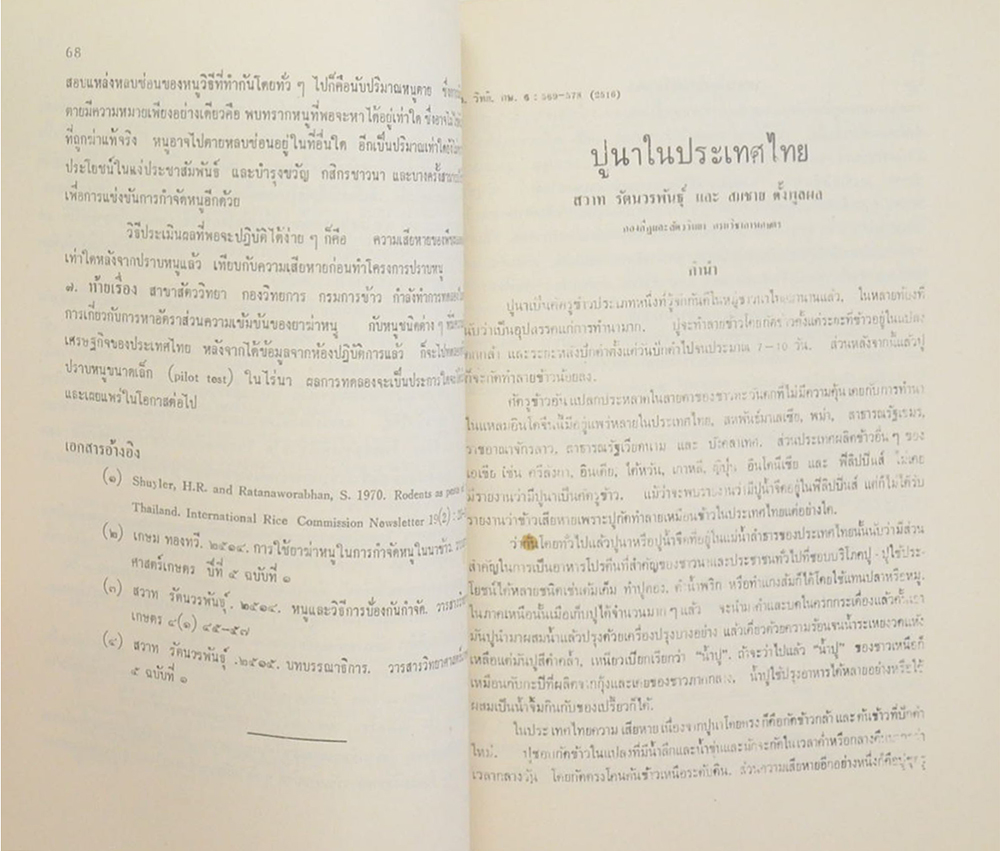 68
สอบแหล่งหลบซ่อนของหนูวิธีที่ทำกันโดยทั่ว ๆ ไปก็คือนับปริมาณหนูตาย
ตายมีความหมายเพียงอย่างเดียวคือ พบทรากหนูที่พอจะหาได้อยู่เท่าใด
ที่ถูกฆ่าแท้จริง หนูอาจไปตายหลบซ่อนอยู่ในที่อื่นใด อีกเป็นปริมาณเท่าใด
ประโยชน์ในแง่ประชาสัมพันธ์ และบำรุงขวัญ กสิกรชาวนา และบางครั้ง
เพื่อการแข่งขันการกำจัดหนูอีกด้วย
วิธีประเมินผลที่พอจะปฏิบัติได้ง่าย ๆ ก็คือ ความเสียหายของพืช
เท่าใดหลังจากปราบหนูแล้ว เทียบกับความเสียหายก่อนทำโครงการปราบหนู
๗. ท้ายเรื่อง สาขาสัตววิทยา กองวิทยการ กรมการข้าว กำลังทำการ
การเกี่ยวกับการหาอัตราส่วนความเข้มข้นของยาฆ่าหนู กับหนูชนิดต่าง ๆ
เศรษฐกิจของประเทศไทย หลังจากได้ข้อมูลจากห้องปฏิบัติการแล้ว ก็จะไป
ปราบหนูขนาดเล็ก (pilot test) ในไร่นา ผลการทดลองจะเป็นประการใด
และเผยแพร่ในโอกาสต่อไป
เอกสารอ้างอิง
(๑) Shuyler, H.R. and Ratanaworabhan, S. 1970. Rodents as pests
Thailand. International Rice Commission Newsletter 19(2) :
(๒) เกษม ทองทวี. ๒๕๑๔. การใช้ยาฆ่าหนูในการกำจัดหนูในนาข้าว
ศาสตร์เกษตร ปีที่ ๕ ฉบับที่ ๑
(๓) สวาท รัตนวรพันธุ์. ๒๕๑๔. หนูและวิธีการป้องกันกำจัด.
เกษตร ๔(๑) ๔๕-๕๗
(๔) สวาท รัตนวรพันธุ์ .๒๕๑๕. บทบรรณาธิการ. วารสารวิทยาศาสตร์
๕ ฉบับที่ ๑
วิทย์. กษ. 6 : 569-578 (2516)
ปูนาในประเทศไทย
สวาท รัตนวรพันธุ์ และ สมชาย ตั้งพูลผล
กองกีฏและสัตววิทยา กรมวิชาการเกษตร
คำนำ
ปูนาเป็นศัตรูข้าวประเภทหนึ่งที่รู้จักกันดีในหมู่ชาวนาไทยมานานแล้ว, ในหลายท้องที่
นับว่าเป็นอุปสรรคแก่การทำนามาก. ปูจะทำลายข้าวโดยกัดข้าวตั้งแต่ระยะที่ข้าวอยู่ในแปลง
ตกกล้า และระยะหลังปักดำตั้งแต่วันปักดำไปจนประมาณ 7-10 วัน. ส่วนหลังจากนี้แล้วปู
ก็จะกัดทำลายข้าวน้อยลง.
ศัตรูข้าวอันแปลกประหลาดในสายตาของชาวตะวันตกที่ไม่มีความคุ้นเคยกับการทำนา
ในแหลมอินโดจีนนี้มีอยู่แพร่หลายในประเทศไทย, สหพันธ์มาเลเซีย, พม่า, สาธารณรัฐเขมร,
ราชอาณาจักรลาว, สาธารณรัฐเวียดนาม และ บังคลาเทศ. ส่วนประเทศผลิตข้าวอื่น ๆ ของ
เอเซีย เช่น ศรีลังกา, อินเดีย, ไต้หวัน, เกาหลี, ญี่ปุ่น อินโดนีเซีย และ ฟิลิปปินส์ ไม่เคย
มีรายงานว่ามีปูนาเป็นศัตรูข้าว. แม้ว่าจะพบรายงานว่ามีปูน้ำจืดอยู่ในฟิลิปปินส์ แต่ก็ไม่ได้รับ
รายงานว่าข้าวเสียหายเพราะปูกัดทำลายเหมือนข้าวในประเทศไทยแต่อย่างใด.
ว่ากันโดยทั่วไปแล้วปูนาหรือปูน้ำจืดที่อยู่ในแม่น้ำลำธารของประเทศไทยนั้นนับว่ามีส่วน
สำคัญในการเป็นอาหารโปรตีนที่สำคัญของชาวนาและประชาชนทั่วไปที่ชอบบริโภคปู - ปูใช้ประ-
โยชน์ได้หลายชนิดเช่นต้มเค็ม ทำปูดอง, ตำน้ำพริก หรือทำแกงส้มก็ได้โดยใช้แทนปลาหรือหมู,
ในภาคเหนือนั้นเมื่อเก็บปูได้จำนวนมาก ๆ แล้ว จะนำมาตำและบดในครกกระเดื่องแล้วคั้นเอา
มันปูนำมาผสมน้ำแล้วปรุงด้วยเครื่องปรุงบางอย่าง แล้วเคี่ยวด้วยความร้อนจนน้ำระเหยงวดแห้ง
เหลือแต่มันปูสีดำคล้ำ, เหนียวเปียกเรียกว่า "น้ำปู". ถ้าจะว่าไปแล้ว "น้ำปู" ของชาวเหนือก็
เหมือนกับกะปิที่ผลิตจากกุ้งและเคยของชาวภาคกลาง, น้ำปูใช้ปรุงอาหารได้หลายอย่างหรือใช้
ผสมเป็นน้ำจิ้มกินกับของเปรี้ยวก็ได้.
ในประเทศไทยความเสียหายเนื่องจากปูนาโดยตรง ก็คือกัดข้าวกล้า และต้นข้าวที่ปักดำ
ใหม่. ปูชอบกัดข้าวในแปลงที่มีน้ำลึกและน้ำขุ่นและมักจะกัดในเวลาค่ำหรือกลางคืนมากกว่า
เวลากลางวัน โดยกัดตรงโคนต้นข้าวเหนือระดับดิน. ส่วนความเสียหายอีกอย่างหนึ่งก็คือปู